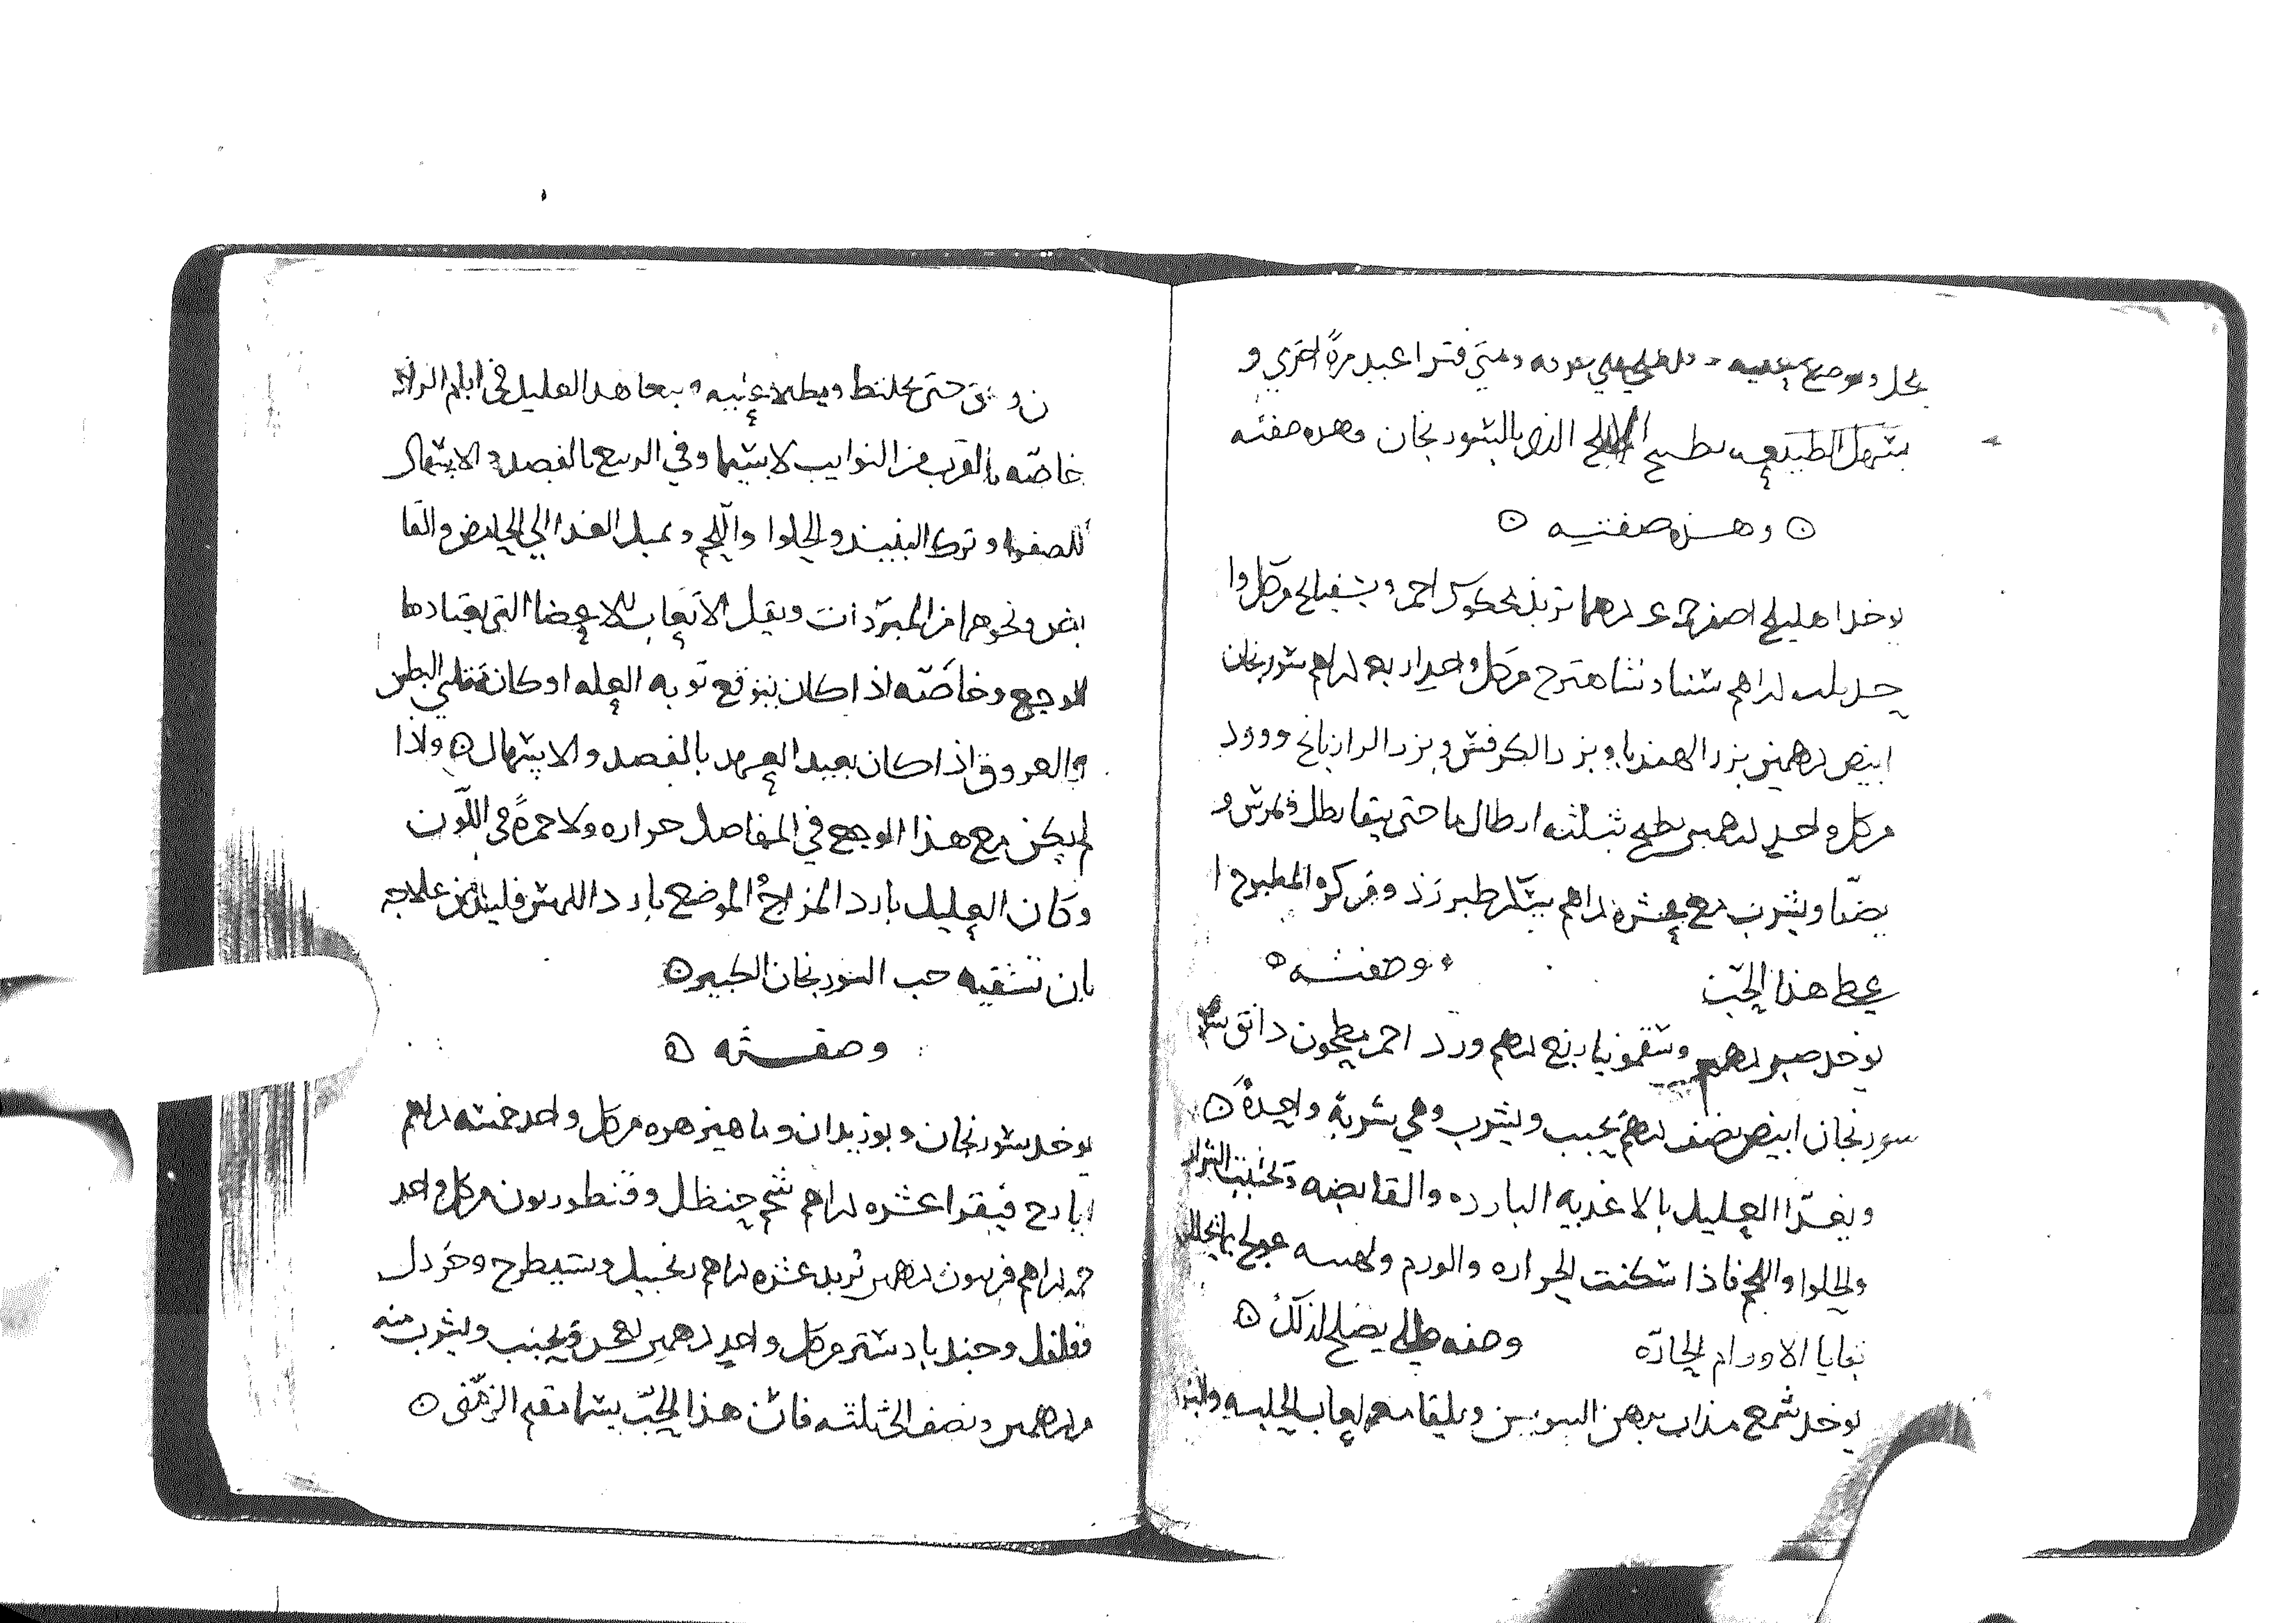 بخل وموضع عليه ومتي فتر اعيد مرةً اخري و
يسهل الطبيعه بطبيخ الهليلج الذي بالسورنجان وهذه صفته
وهذه صفته
يوخذ اهليلج اصفر درهما تربذ محكوك احمر وبسفايج من كل وا
حد ثلث دراهم سنا وشاهترج من كل واحد اربعه دراهم سورنجان
ابيض درهمين بزر الهندبا وبزر الكرفس وبزر الرازيانج وورد
من كل واحد درهمين يطبخ بثلثه ارطال ما حتي يبقا رطل فيمرس و
يصفا ويشرب مع عشره دراهم سكر طبرزذ وقد كره المطبوخ ا
يعط هذا الحب وصفته
يوخذ صبر درهم وسقمونيا ربع درهم ورد احمر مطحون دانق
سورنجان ابيض نصف درهم يحبب ويشرب وهي شربة واحدة
ويغذا العليل بالاغذيه البارده والقابضه وتجنب الشراب
والحلوا واللحم فاذا سكنت الحراره والورم ولهيبه عولج
بقايا الاورام الحادّه وصفه طلي يصلح لذلك
يوخذ شمع مذاب بدهن السوسن ويلقا معه لعاب الحلبه والبزر
حتى يختلط ويطلا عليه ويتعاهد العليل في ايام الراحة
خاصّه بالقرب من النوايب لا سيما وفي الربيع بالفصد والاسهال
للصفرا وترك النبيذ والحلوا واللحم ويميل الغدا الي الحامض والقا
بض ونحوهما من المبرّدات ويقل الاتعاب للاعضا التي يعتادها
الوجع وخاصّه اذا كان يتوقع نوبه العله او كان ممتلي البطن
والعروق اذا كان بعيد العهد بالفصد والاسهال واذا
لم يكن مع هذا الوجع في المفاصل حراره ولا حمرةً في اللّون
وكان العليل بارد المزاج والموضع بارد اللمس فليكن علاجه
بان تسقيه حب السورنجان الكبير
وصفته
يوخذ سورنجان وبوزيدان وماهيزهره من كل واحد خمسه دراهم
ايارج فيقرا عشره دراهم شحم حنظل وقنطوريون من كل واحد
دراهم فربيون درهمين تربد عشره دراهم زنجبيل وشيطرج وخردل
وفلفل وجندبادستر من كل واحد درهمين يعجن ويحبب ويشرب منه
من درهمين ونصف الي ثلثه فان هذا الحبّ